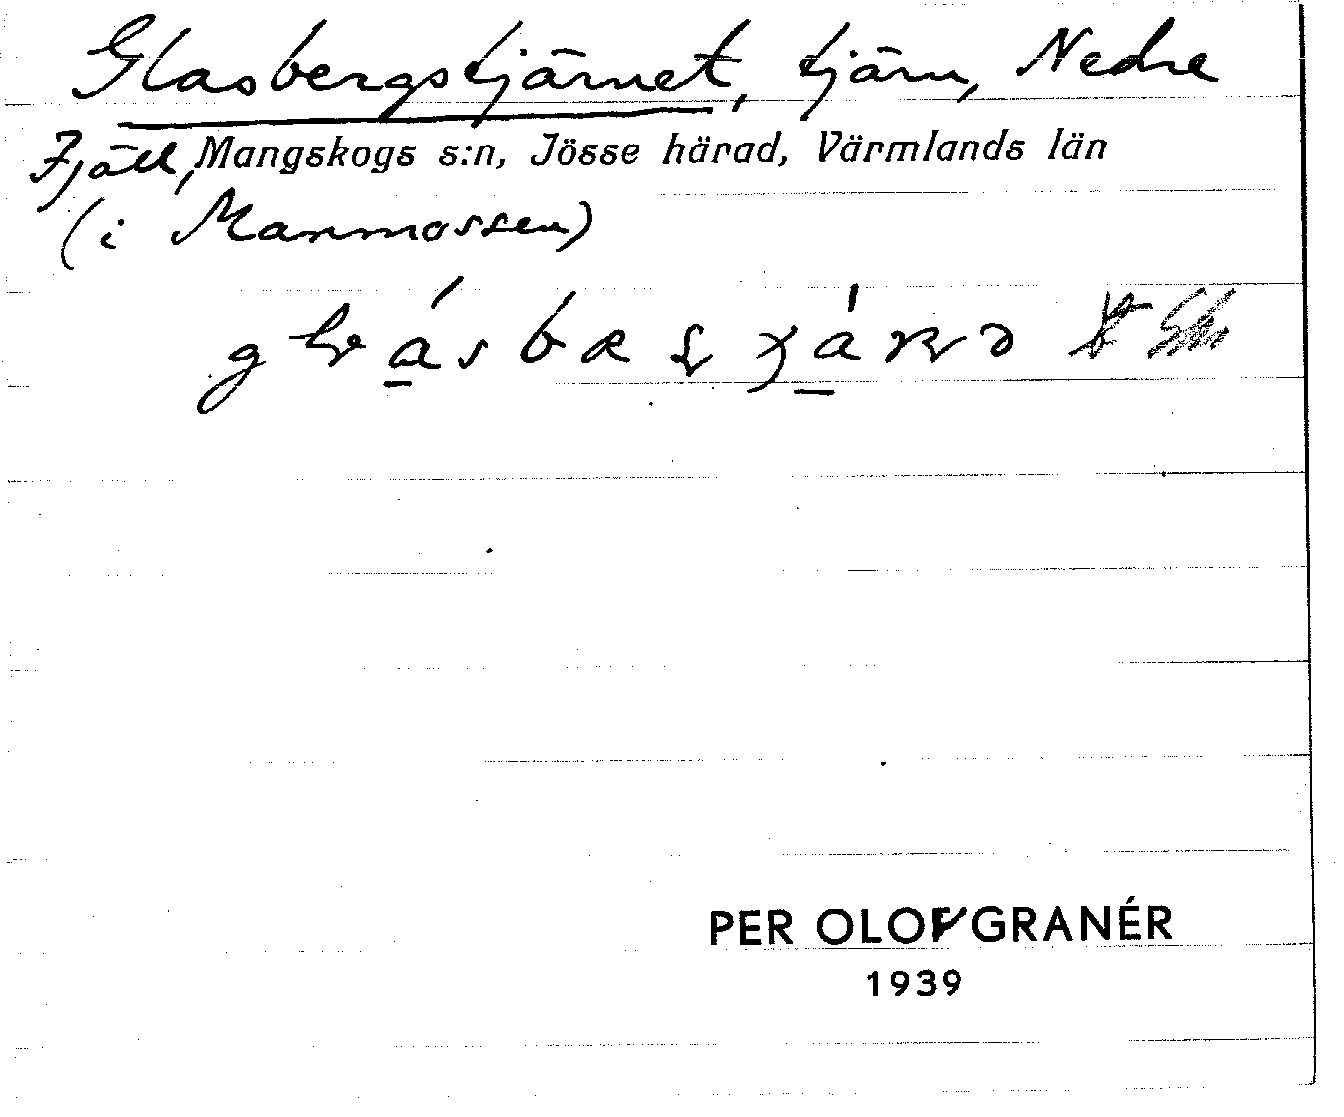 Glasbergstjärnet, tjärn, Nedre
Fjäll, Mangskogs s:n, Jösse härad, Värmlands län
(i Manmossen)
PER OLOF GRANÉR
1939